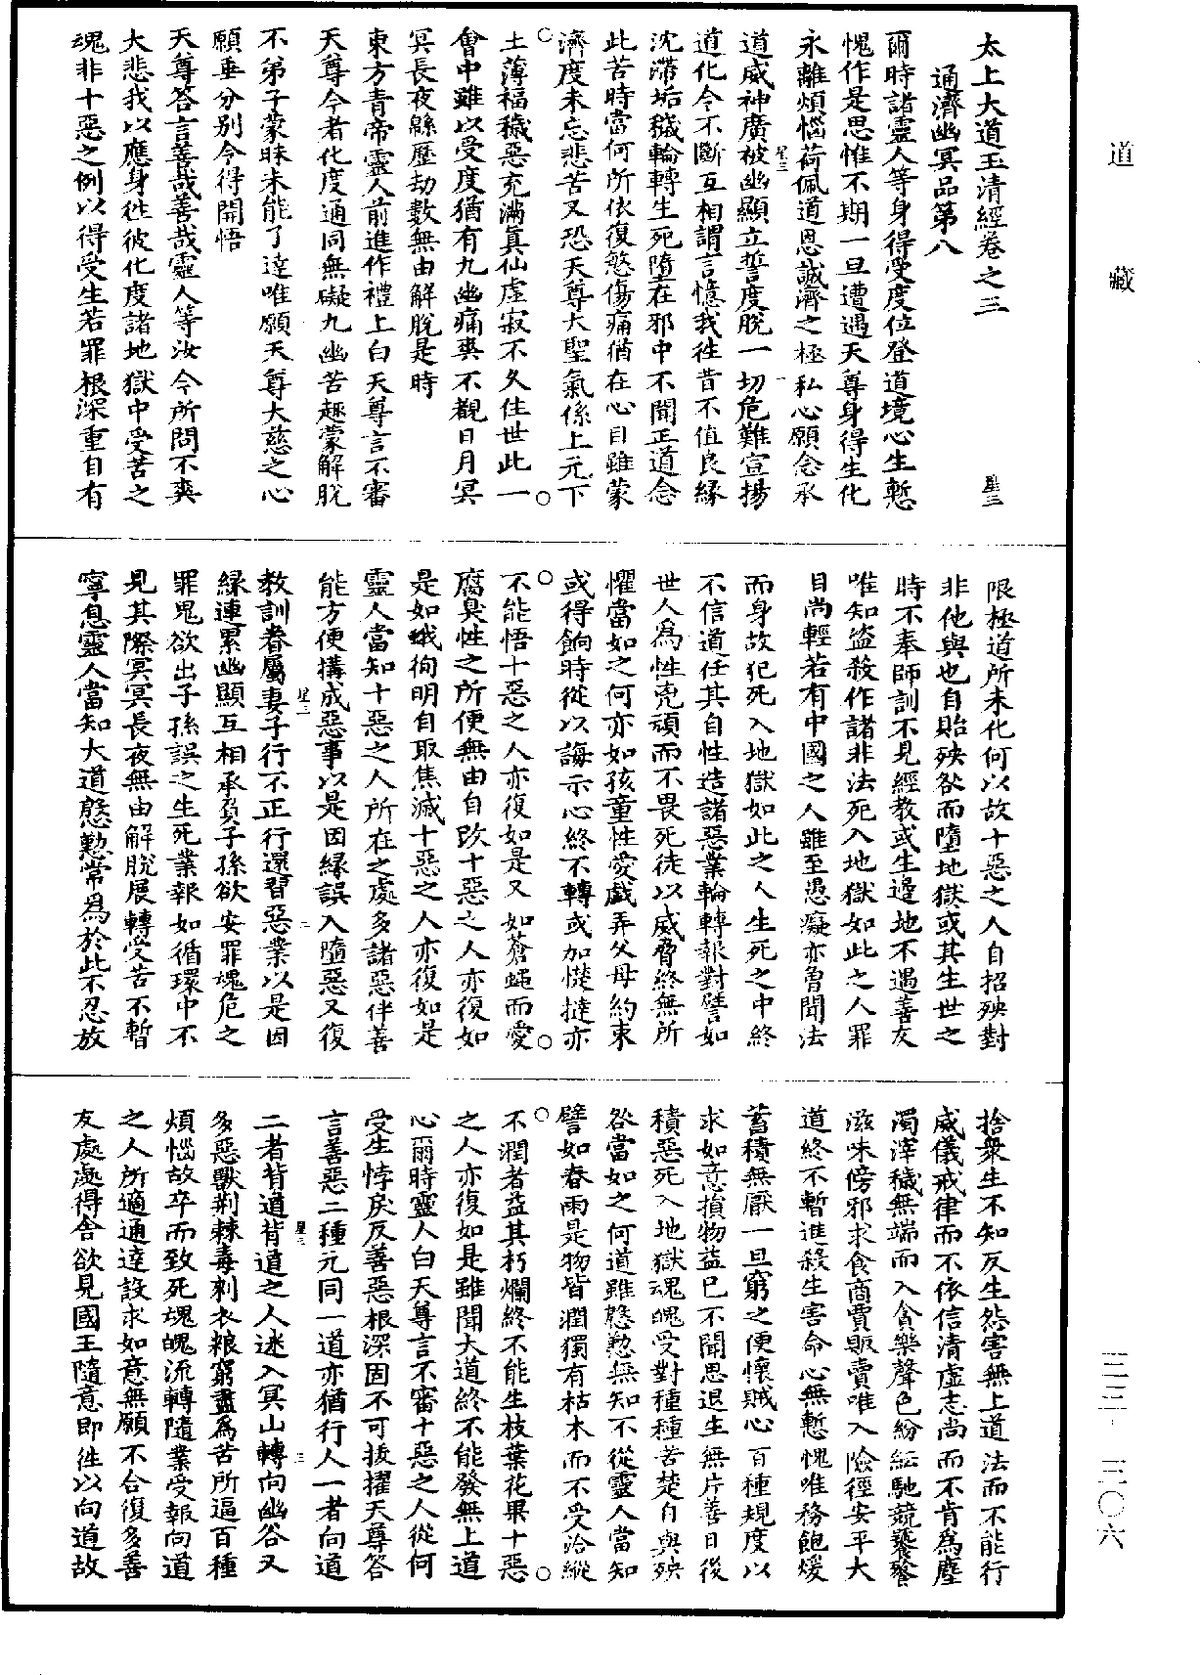 道藏
太上大道玉清經卷之三 星三
通濟幽冥品第八
爾時諸靈人等身得受度位登道境心生慙
愧作是思惟不期一旦遭遇天尊身得生化
永離煩惱荷佩道恩誠濟之極私心願念承
星三 一
道威神廣被幽顯立誓度脫一切危難宣揚
道化令不斷互相謂言憶我往昔不值良緣
沈滯垢穢輪轉生死墮在邪中不聞正道念
此苦時當何所依復愍傷痛猶在心目雖蒙
濟度未忘悲苦又恐天尊大聖氣係上元下
土薄福穢惡充滿真仙虛寂不久住世此一
會中雖以受度猶有九幽痛爽不覩日月冥
冥長夜緜歷劫數無由解脫是時
東方青帝靈人前進作禮上白天尊言不審
天尊今者化度通同無礙九幽苦趣蒙解脫
不弟子蒙昧未能了達唯願天尊大慈之心
願垂分別令得開悟
天尊答言善哉善哉靈人等汝今所問不爽
大悲我以應身往彼化度諸地獄中受苦之
魂非十惡之例以得受生若罪根深重自有
限極道所未化何以故十惡之人自招殃對
非他與也自貽殃咎而墮地獄或其生世之
時不奉師訓不見經教或生邊地不遇善友
唯知盜殺作諸非法死入地獄如此之人罪
目尚輕若有中國之人雖至愚癡亦魯聞法
而身故犯死入地獄如此之人生死之中終
不信道任其自性造諸惡業輪轉報對譬如
世人為性兇頑而不畏死徒以威脅終無所
懼當如之何亦如孩童性愛戲弄父母約束
或得餉時從以誨示心終不轉或加慥撻亦
不能悟十惡之人亦復如是又如蒼蠅而愛
腐臭性之所便無由自改十惡之人亦復如
是如蛾徇明自取焦滅十惡之人亦復如是
靈人當知十惡之人所在之處多諸惡伴善
能方便搆成惡事以是因緣誤入墮惡又復
星三 二
教訓眷屬妻子行不正行還習惡業以是因
緣連累幽顯互相承負子孫欲安罪魂危之
罪鬼欲出子孫誤之生死業報如循環中不
見其際冥冥長夜無由解脫展轉受苦不暫
寧息靈人當知大道慇懃常為於此不忍放
捨衆生不知反生怨害無上道法而不能行
威儀戒律而不依信清虛志尚而不肯為塵
濁滓穢無端而入貪樂聲色紛紜馳競饕餮
滋味傍邪求食商賈販賣唯入險徑安平大
道終不暫進殺生害命心無慙愧唯務飽煖
蓄積無厭一旦窮之便懷賊心百種規度以
求如意損物益己不聞思退生無片善日後
積惡死入地獄魂魄受對種種苦楚自與殃
咎當如之何道雖慇懃無知不從靈人當知
譬如春雨是物皆潤獨有枯木而不受洽縱
不潤者益其朽爛終不能生枝葉花果十惡
之人亦復如是雖聞大道終不能發無上道
心爾時靈人白天尊言不審十惡之人從何
受生悖戾反善惡根深固不可拔擢天尊答
言善惡二種元同一道亦猶行人一者向道
星三 三
二者背道背道之人迷入冥山轉向幽谷又
多惡獸荊棘毒刺衣粮窮盡為苦所逼百種
煩惱故卒而致死魂魄流轉隨業受報向道
之人所適通達設求如意無願不合復多善
友處處得舍欲見國王隨意即往以向道故
三三-三〇六